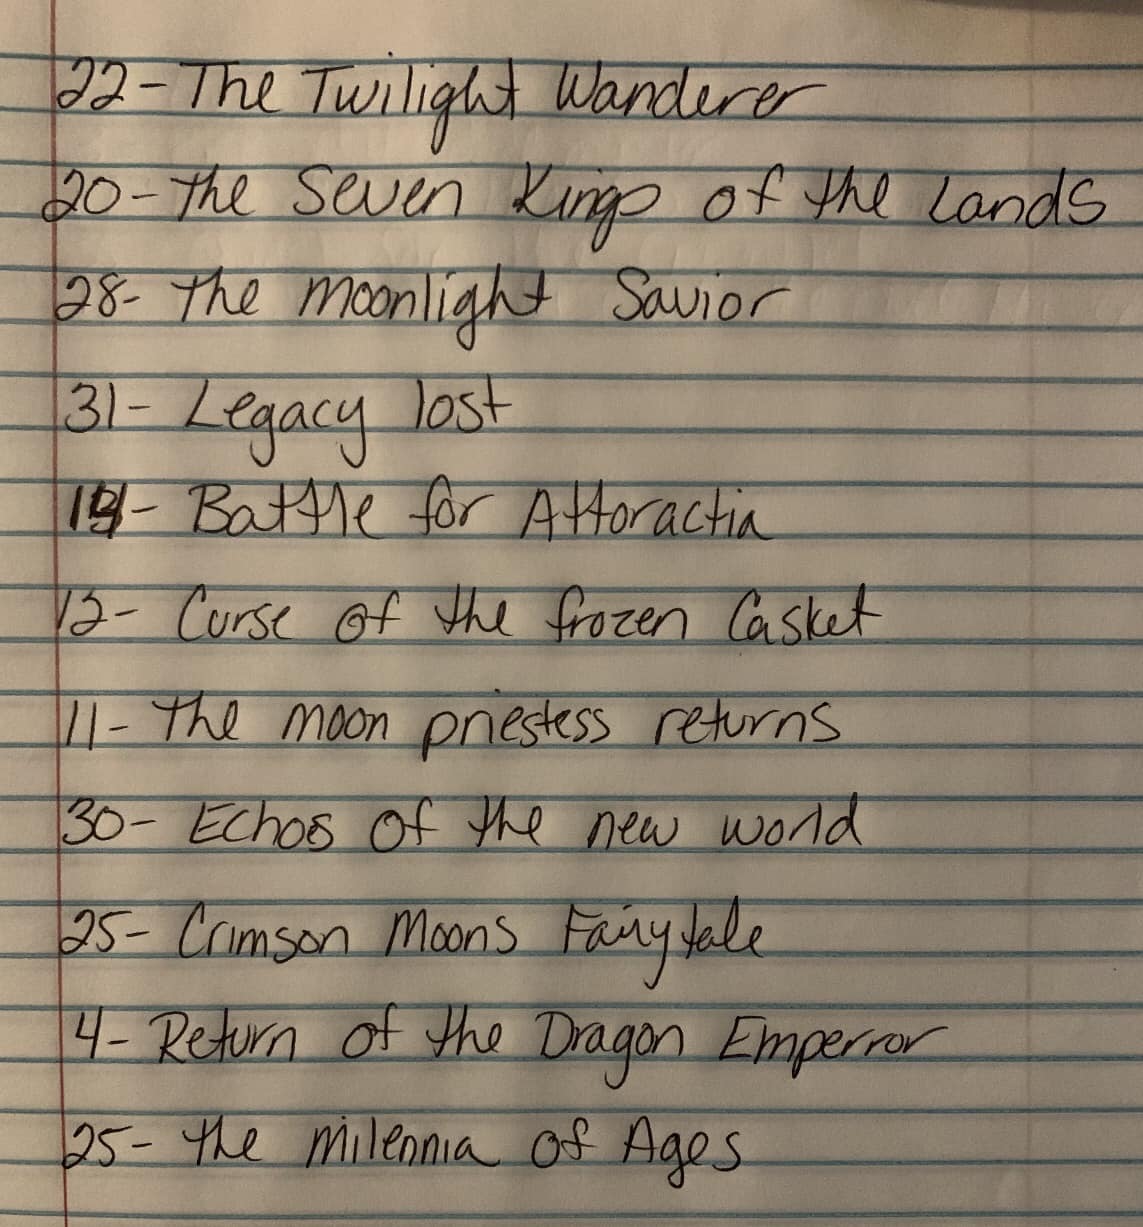 22- The Twilight Wanderer
20- the Seven Kings of the Lands
28- the moonlight Savior
31- Legacy lost
- Battle for Attoractia
12- Curse of the frozen Casket
11- the moon priestess returns
30- Echos of the new world
25- Crimson Moons Fairytale
4- Return of the Dragon Emperror
25- the milennia of Ages